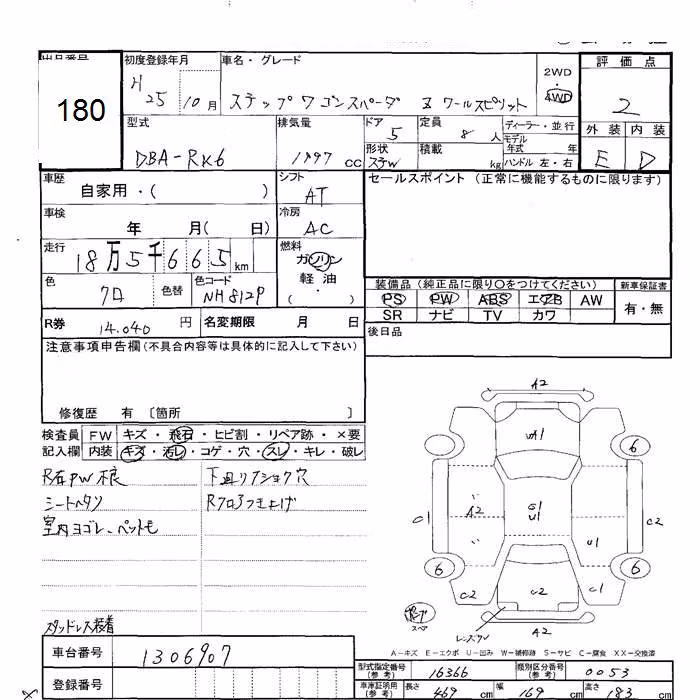 180
初度登録年月
車名・グレード
評価点
H 25 10月
ステップワゴンスパーダ Z クールスピリット
2WD
・
4WD
2
型式
排気量
ドア 5
定員 8 人
ディーラー・並行
外装 内装
DBA-RK6
1997 cc
形状
ステW
積載 kg
モデル
年式 年
ハンドル 左・右
E D
車歴
自家用・( )
シフト
AT
セールスポイント (正常に機能するものに限ります)
車検
年 月( 日)
冷房
AC
走行
18万5千665 km
燃料
ガソリン
軽油
( )
色
クロ
色替
色コード
NH812P
装備品 (純正品に限り〇をつけてください)
新車保証書
PS PW ABS エアB AW
有・無
SR ナビ TV カワ
R券 14.040 円
名変期限 月 日
後日品
注意事項申告欄(不具合内容等は具体的に記入して下さい)
修復歴 有 〔箇所 〕
検査員 FW キズ・飛石・ヒビ割・リペア跡・×要
記入欄 内装 キズ・汚レ・コゲ・穴・スレ・キレ・破レ
R右PW不良
下廻リ
シートヘタリ
室内ヨゴレ、ペット毛
スタッドレス装着
A2
A1
6
A2
C1
U1
C2
U1
6
6
C2
C2
C1
スペア
A2
A-キズ E-エクボ U-凹み W-補修跡 S-サビ C-腐食 XX-交換済
車台番号 1306907
型式指定番号
(参考)
16366
類別区分番号
(参考)
0053
登録番号
車庫証明用
(参考)
長さ 469 cm
幅 169 cm
高さ 183 cm